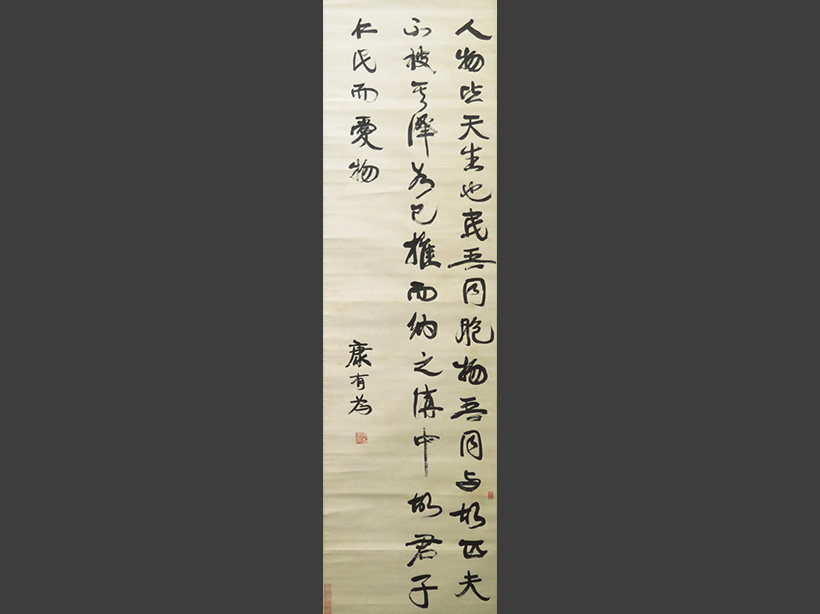 人物皆天生也民吾同胞物吾同与故匹夫
不被其澤若己推而納之溝中故君子
仁民而愛物
康有為